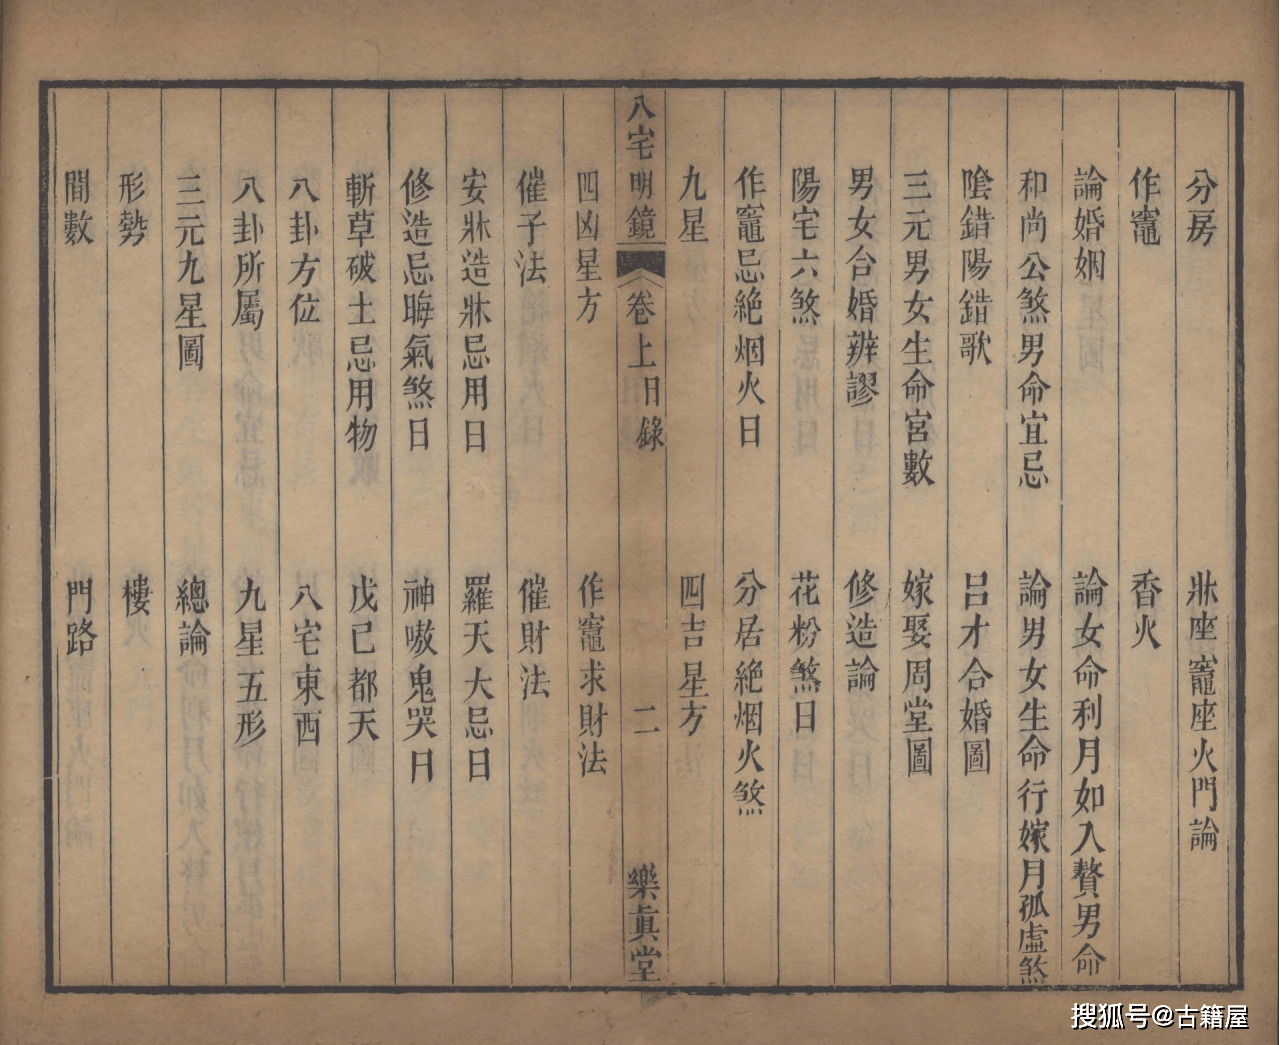 分房　牀座竈座火門論
作竈　香火
論婚姻　論女命利月如入贅男命
和尚公煞男命宜忌　論男女生命行嫁月孤虛煞
陰錯陽錯歌　呂才合婚圖
三元男女生命宮數　嫁娶周堂圖
男女合婚辨謬　修造論
陽宅六煞　花粉煞日
作竈忌絶烟火日　分居絶烟火煞
九星　四吉星方
八宅明鏡　卷上目錄　二　樂眞堂
四凶星方　作竈求財法
催子法　催財法
安牀造牀忌用日　羅天大忌日
修造忌晦氣煞日　神嗷鬼哭日
斬草破土忌用物　戊己都天
八卦方位　八宅東西
八卦所屬　九星五形
三元九星圖　總論
形勢　樓
間數　門路
搜狐号@古籍屋